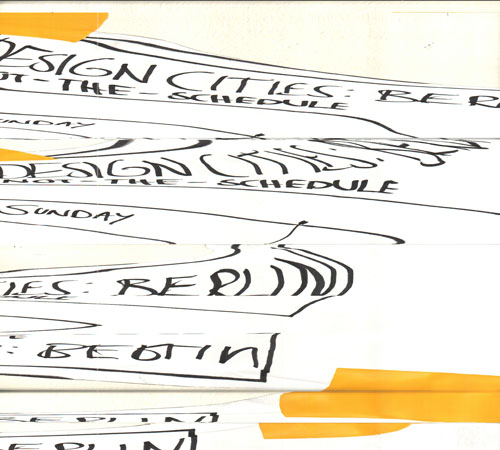 DESIGN CITIES: BER
NOT-THE-SCHEDULE
SUNDAY
DESIGN CITIES: BERLIN
NOT-THE-SCHEDULE
SUNDAY
IES: BERLIN
: BERLIN
BERLIN
BERLIN